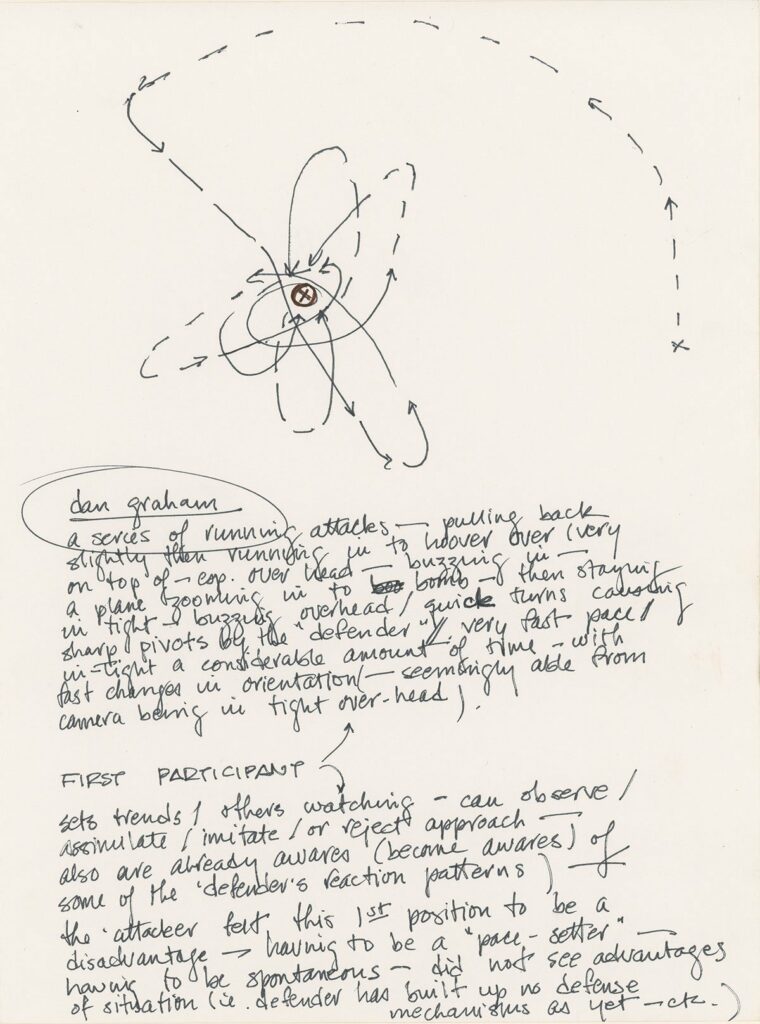 dan graham
a series of running attacks — pulling back
slightly then running in to hoover over (very
on top of — esp. over head — buzzing in —
a plane zooming in to bomb — then staying
in tight — buzzing overhead / quick turns causing
sharp pivots by the "defender" // very fast pace /
in-tight a considerable amount of time — with
fast changes in orientation (— seemingly able from
camera being in tight over-head).
FIRST PARTICIPANT
sets trends / others watching — can observe /
assimilate / imitate / or reject approach —
also are already awares (become awares) of
some of the 'defender's reaction patterns) —
the 'attackeer felt this 1st position to be a
disadvantage → having to be a "pace-setter" —
having to be spontaneous — did not see advantages
of situation (i.e. defender has built up no defense
mechanisms as yet — etc.)